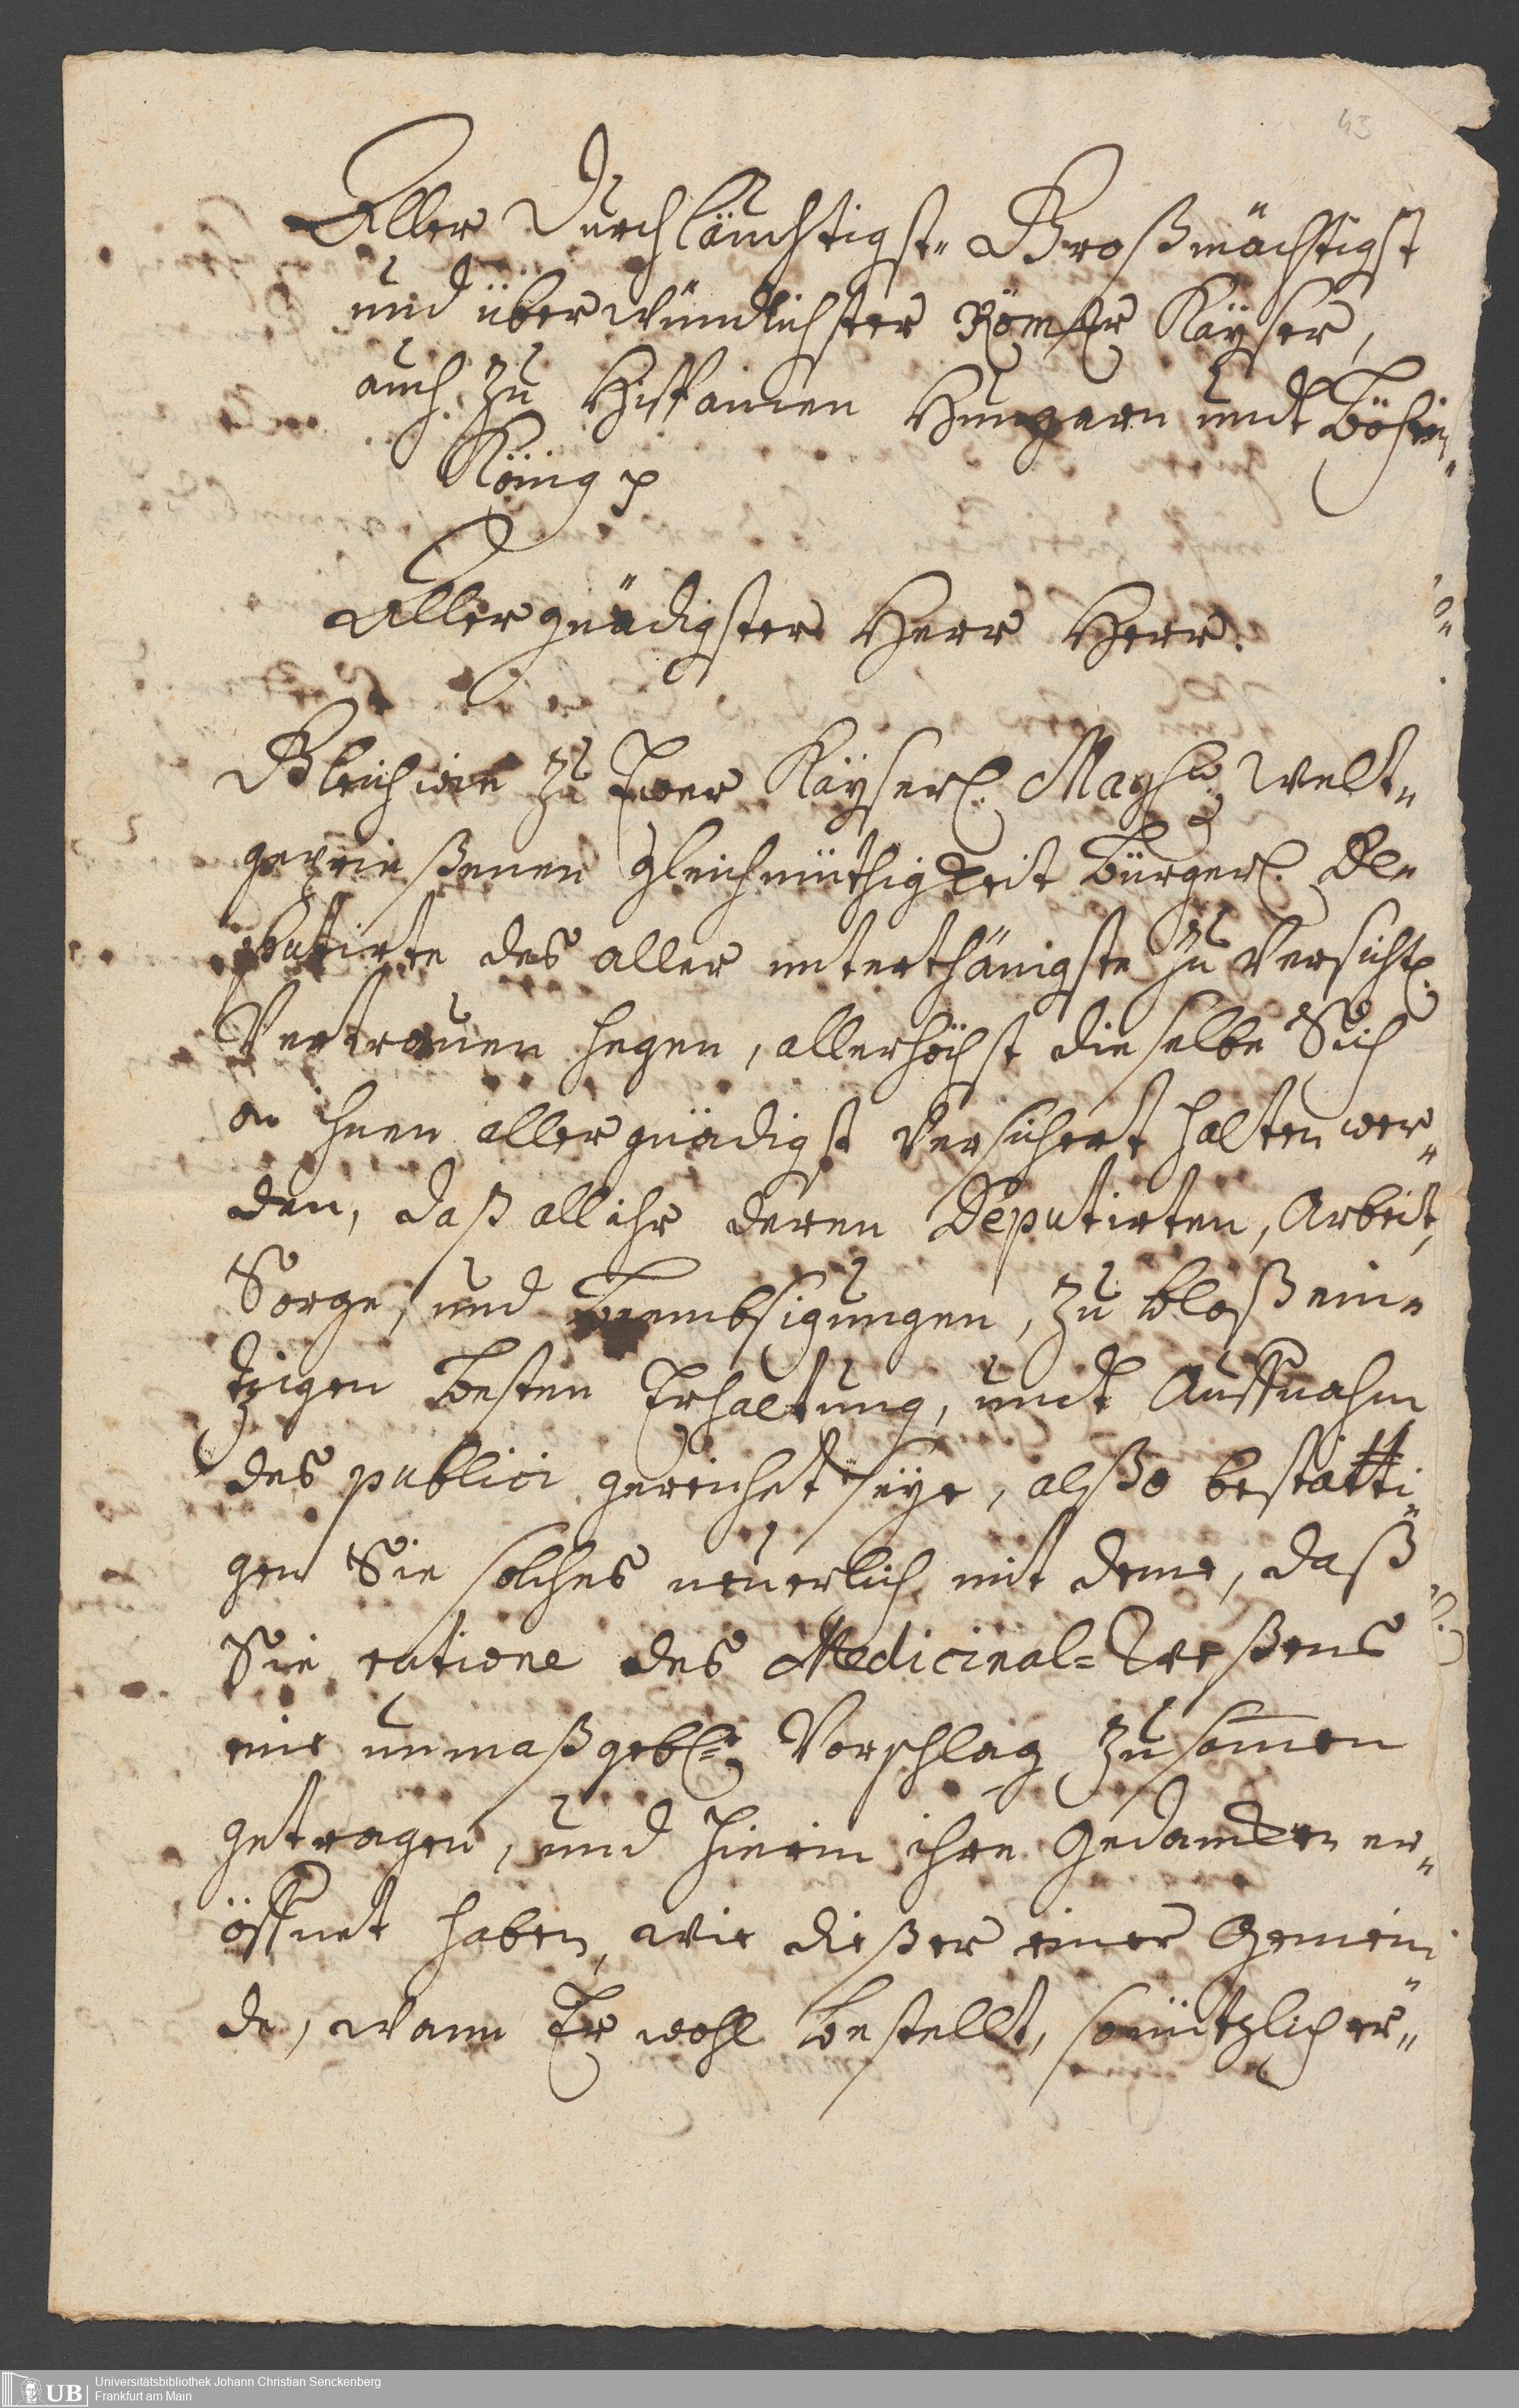 43
Aller Durchläuchtigst- Großmächtigst
und überwündlichster Römscher Käyser,
auch zu Hispanien Hungarn undt Böhm„
König p
Allergnädigster Herr Herr.
Gleichwie zu Ewer Käyserl. Mayst. Welt„
geprießenen Gleichmüthigkeit bürgerl. De„
putirte das aller unterthänigste zuversichtl.
Vertrauen hegen, allerhöchst dieselbe Sich
an ihnen allergnädigst versichert halten wer„
den, daß all ihr deren Deputirten, Arbeit,
Sorge, und bembsigungen, zu bloß ein„
tzigen besten Erhaltung, undt Auffnahm
des publici gereichet seye, alßo bestätti„
gen Sie solches neuerlich mit deme, daß
Sie ratione des Medicinal-Weßens
eine unmaßgebl. Vorschlag zusamen
getragen, und hierin ihre Gedancken er„
öffnet haben, wie dießer einer Gemein„
de, wann Er wohl bestellt, so nützlich er„
Universitätsbibliothek Johann Christian Senckenberg
Frankfurt am Main
UB